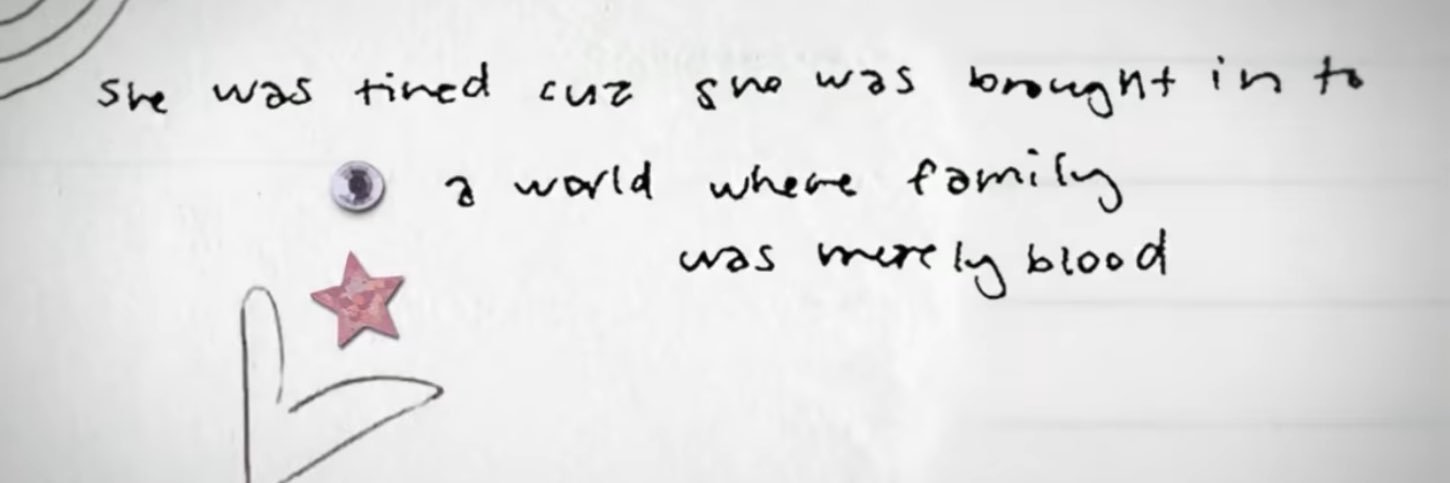 she was tired cuz she was brought in to
a world where family
was merely blood